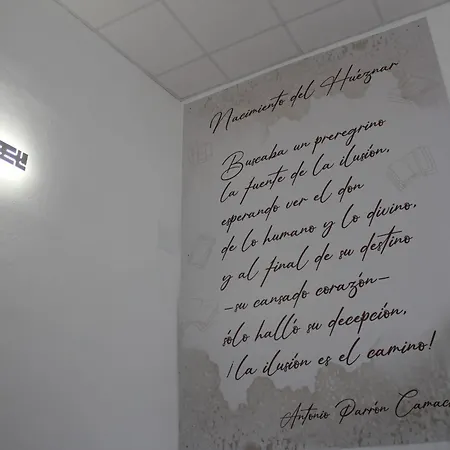 Nacimiento del Huéznar
Buscaba un preregrino
la fuente de la ilusión,
esperando ver el don
de lo humano y lo divino,
y al final de su destino
-su cansado corazón-
sólo halló su decepción,
¡la ilusión es el camino!
Antonio Parrón